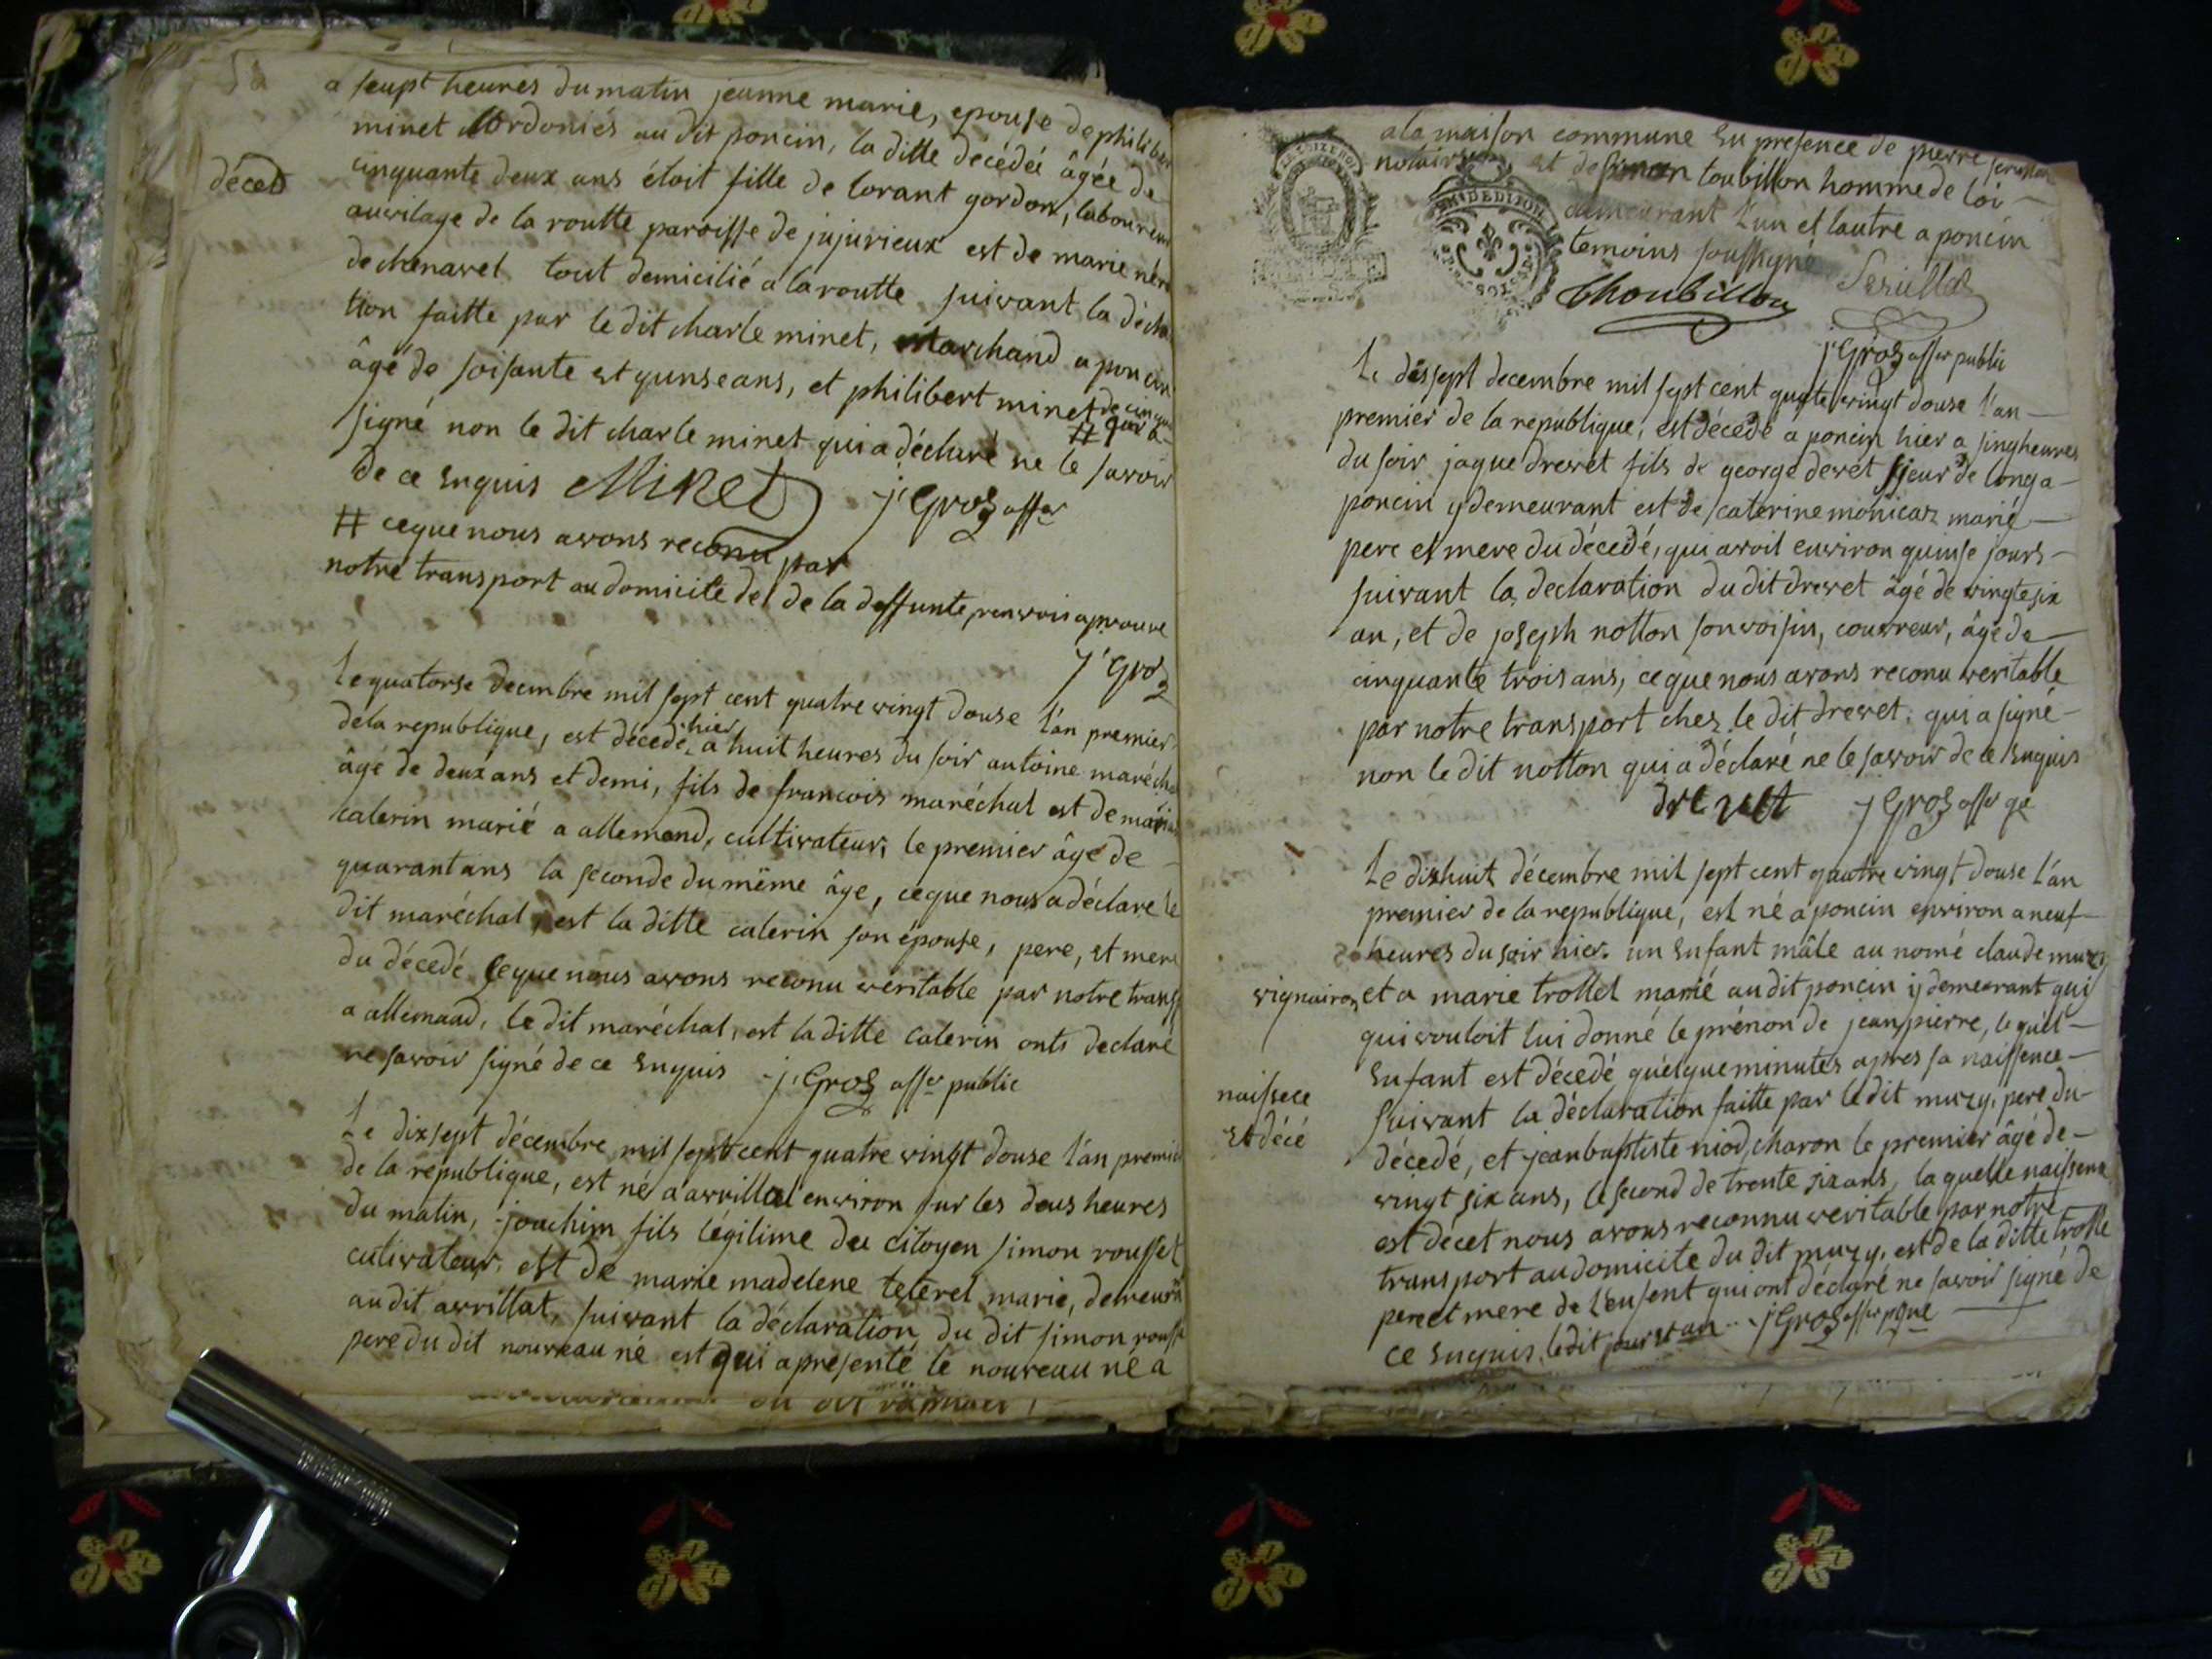 a seupt heures du matin jeanne marie, epouse de philiber
minet Cordoniés au dit poncin, la ditte décédée âgée de
décet
cinquante deux ans étoit fille de lorant gordon, laboureur
au vilage de la routte paroisse de jujurieux est de marie
de chenavel tout demicilié a la routte suivant la décla
tion faitte par le dit charle minet, marchand a poncin
âgé de soisante et qunse ans, et philibert minet de cinqu
# qui a
signé non le dit charle minet qui a déclaré ne le savoir
de ce enquis Minet j. Gros offer
# ce que nous avons reconu par
notre transport au domicile de de la deffunte, renvois aprouvé
j. Gros
Le quatorse decembre mil sept cent quatre vingt douse l'an premier
de la republique, est décedé hier a huit heures du soir antoine marécha
âgé de deux ans et demi, fils de francois maréchal est de marie
calerin marié a allemend, cultivateur, le premier âgé de
quarant ans la seconde du même âge, ce que nous a déclaré le
dit maréchal, est la ditte calerin son épouse, pere, et mere
du décedé ce que nous avons reconu véritable par notre transp
a allemand, le dit maréchal, est la ditte calerin onts declaré
ne savoir signé de ce enquis j. Gros offer public
Le dixsept décembre mil sept cent quatre vingt douse l'an premier
de la republique, est né a avrillat environ sur les deus heures
du matin, joachim fils légitime du citoyen simon rousset
cultivateur, est de marie madelene teterel marié, demeuran
au dit avrillat, suivant la déclaration du dit simon rousse
pere du dit nouveau né est qui a presenté le nouveau né a
a la maison commune en presence de pierre
notaire et de toubillon homme de loi
demeurant l'un et l'autre a poncin
temoins soussigné
Thoubillon
j. Gros offer public
Le dissept decembre mil sept cent quatre vingt douse l'an
premier de la republique, est décedé a poncin hier a sinq heures
du soir jaque drevet fils de george drevet sieur de long a
poncin y demeurant est de caterine monicar marié
pere et mere du décedé, qui avoit environ quinse jours
suivant la declaration du dit drevet âgé de vingt six
an, et de joseph notton son voisin, couvreur, âgé de
cinquante trois ans, ce que nous avons reconu veritable
par notre transport chez le dit drevet, qui a signé
non le dit notton qui a déclaré ne le savoir de ce enquis
drevet j Gros offer
Le dixhuit décembre mil sept cent quatre vingt douse l'an
premier de la republique, est né a poncin environ a neuf
heures du soir hier. un enfant mâle au nomé claude muzy
vigneron et a marie trollet marié au dit poncin y demeurant qui
qui vouloit lui donné le prénon de jean pierre, le quel
enfant est décedé quelque minutes apres sa naissence
naissece
et décé
suivant la déclaration faitte par le dit muzy, pere du
décedé, et jean baptiste niod, charon le premier âgé de
vingt six ans, le second de trente six ans, la quelle naissence
est décet nous avons reconnu veritable par notre
transport au domicile du dit muzy, est de la ditte trolle
pere et mere de l'enfent qui ont déclaré ne savoir signé de
ce enquis, le dit jour et an j Gros offer